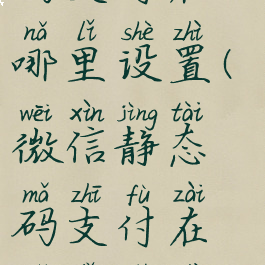 nǎ lǐ shè zhì
哪里设置(
wēi xìn jìng tài
微信静态
mǎ zhī fù zài
码支付在